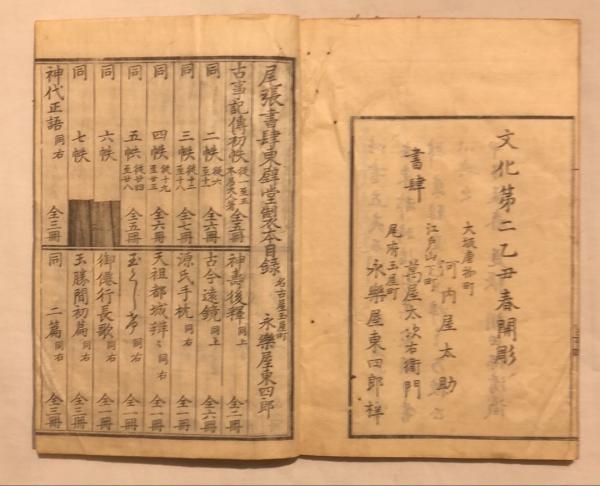 文化第二乙丑春開彫
大坂唐物町
河内屋太助
書肆
江戸山下町
萬屋太次右衛門
尾府玉屋町
永樂屋東四郎梓
尾張書肆東壁堂製本目録
名古屋玉屋町
永樂屋東四郎
古事記傳初帙 従一至五 本居大人著 全五冊
同 二帙 従六至十一 全六冊
同 三帙 従十二至十八 全七冊
同 四帙 従十九至廿三 全六冊
同 五帙 従廿四至廿八 全五冊
同 六帙
同 七帙
神代正語 同右 全三冊
神壽後釋 同上 全二冊
古今遠鏡 同上 全六冊
源氏手枕 同右 全一冊
天祖都城辨々 同右 全一冊
玉くしげ 同右 全一冊
御僊行長歌 同右 全一冊
玉勝間初篇 同右 全三冊
同 二篇 同右 全三冊